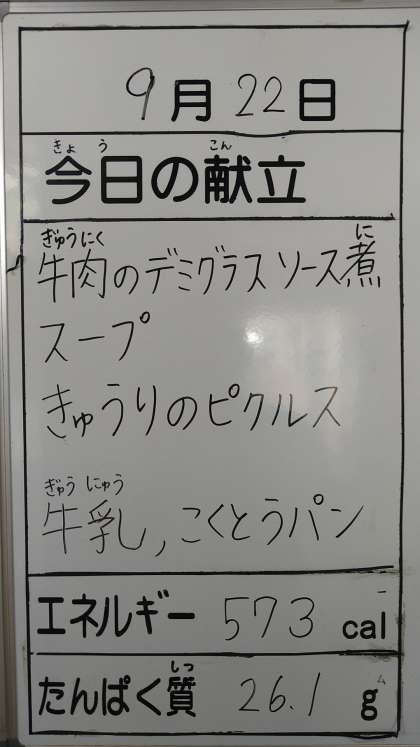 9月22日
きょう こん
今日の献立
ぎゅうにく に
牛肉のデミグラスソース煮
スープ
きゅうりのピクルス
ぎゅう にゅう
牛乳,こくとうパン
エネルギー 573 cal
しつ
たんぱく質 26.1 g